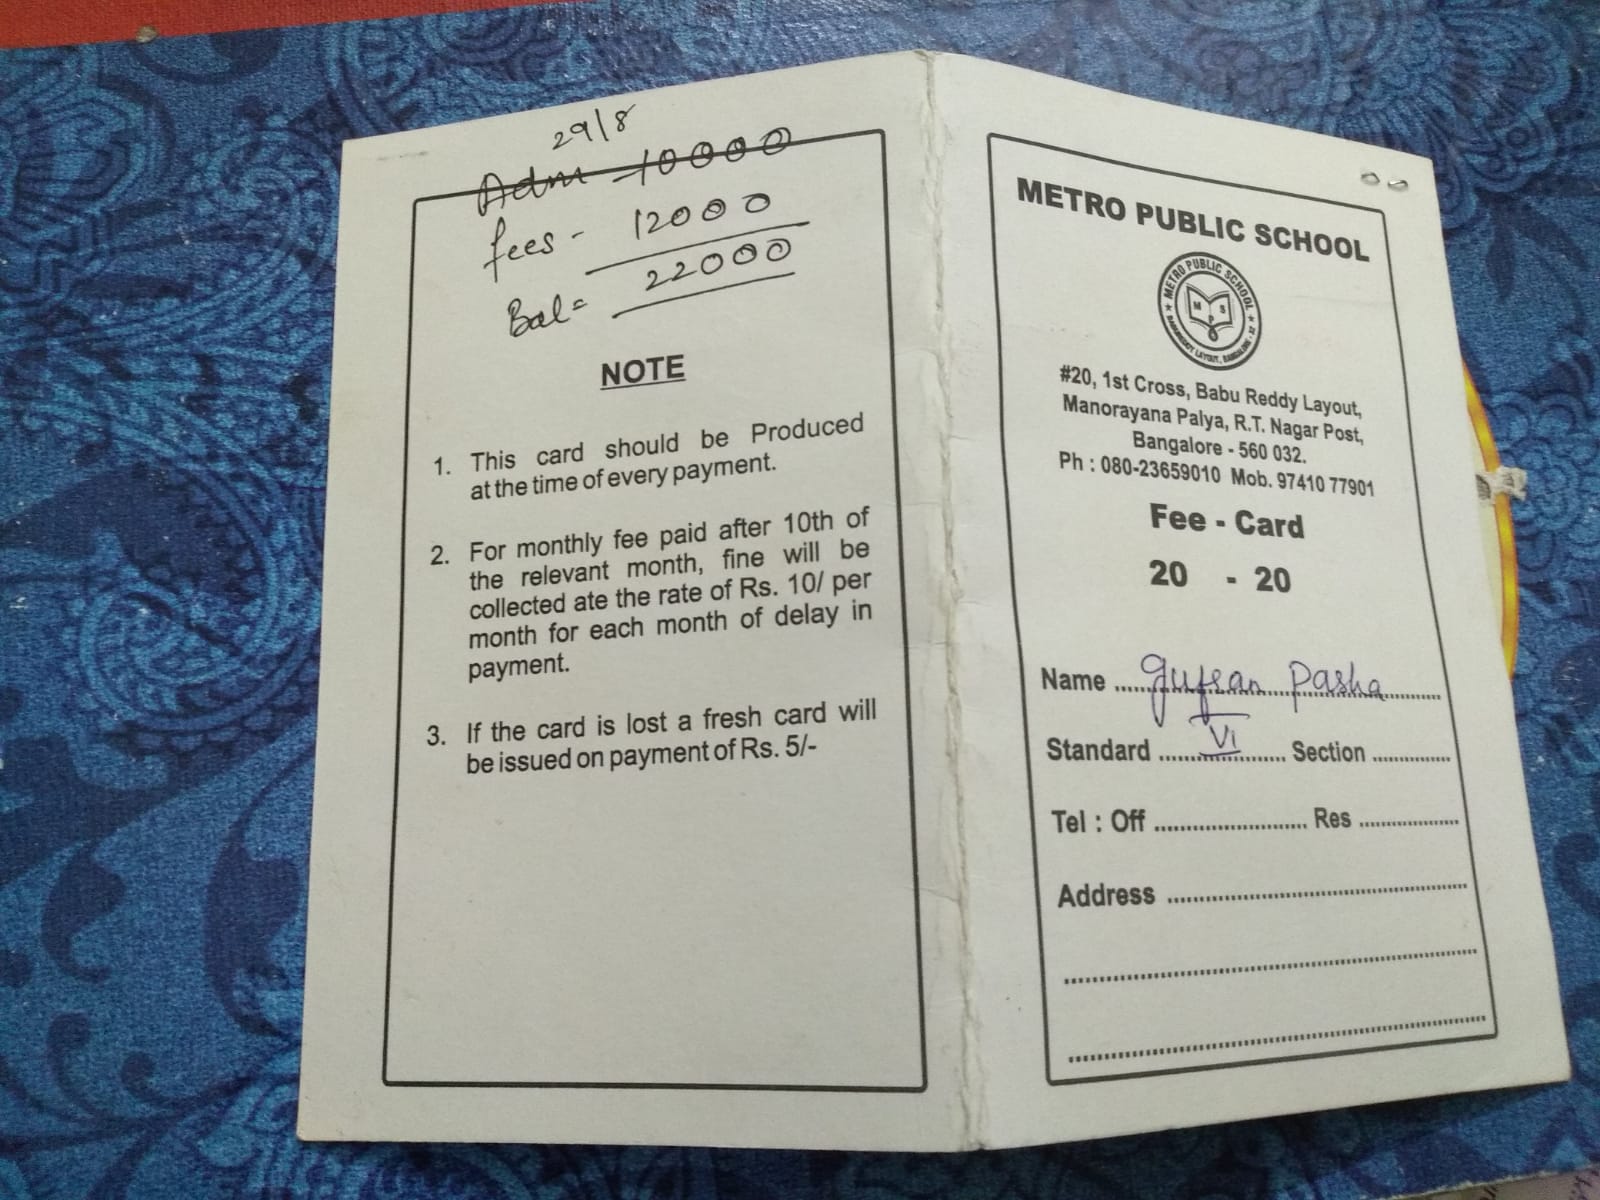 29/8
Adm - 10000
fees - 12000
22000
Bal =
NOTE
1. This card should be Produced
at the time of every payment.
2. For monthly fee paid after 10th of
the relevant month, fine will be
collected ate the rate of Rs. 10/ per
month for each month of delay in
payment.
3. If the card is lost a fresh card will
be issued on payment of Rs. 5/-
METRO PUBLIC SCHOOL
★ METRO PUBLIC SCHOOL ★
M S
P
BABUREDDY LAYOUT, BANGALORE - 32
#20, 1st Cross, Babu Reddy Layout,
Manorayana Palya, R.T. Nagar Post,
Bangalore - 560 032.
Ph : 080-23659010 Mob. 97410 77901
Fee - Card
20 - 20
Name ..... Gufran Pasha .....
Standard ..... VI ..... Section .....
Tel : Off ..... Res .....
Address .....